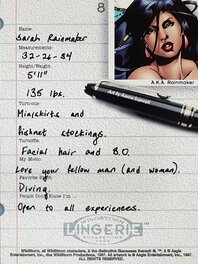 8
Name:
Sarah Rainmaker
Measurements:
32-24-34
Height/Weight:
5'11"
135 lbs.
Turn-ons:
Miniskirts and
fishnet stockings.
Turnoffs:
Facial hair and B.O.
My Motto:
Love your fellow man (and woman).
Favorite Sport:
Diving.
People Don't Know I'm:
Open to all experiences.
A.K.A. Rainmaker
WILDSTORM
LINGERIE
WildStorm, all WildStorm characters,
Entertainment, Inc., the WildStorm Productions, 1997. All art is © Aegis Entertainment, Inc.,
ALL RIGHTS RESERVED.